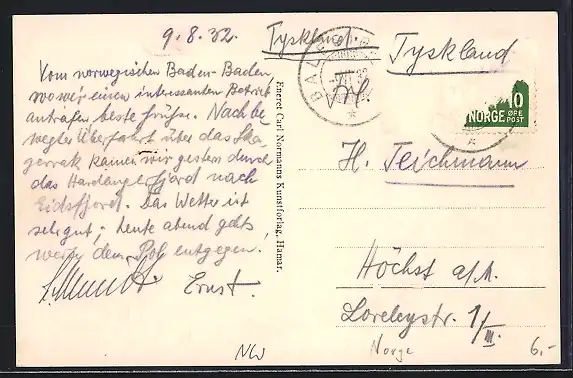 9.8.32.
Tyskland.
Tyskland
BALE
NORGE
10
ØRE
POST
Vom norwegischen Baden-Baden,
wo wir einen interessanten Betrieb
antrafen beste Grüße. Nach be
wegter Überfahrt über das Ska
gerrak kamen wir gestern durch
das Hardangerfjord nach
Eidsfjord. Das Wetter ist
sehr gut; heute abend gehts
weiter dem Pol entgegen.
Ernst.
Eneret Carl Normanns Kunstforlag, Hamar.
H. Teichmann
Höchst a/M.
Loreleystr. 1/III.
NW
Norge
6,-